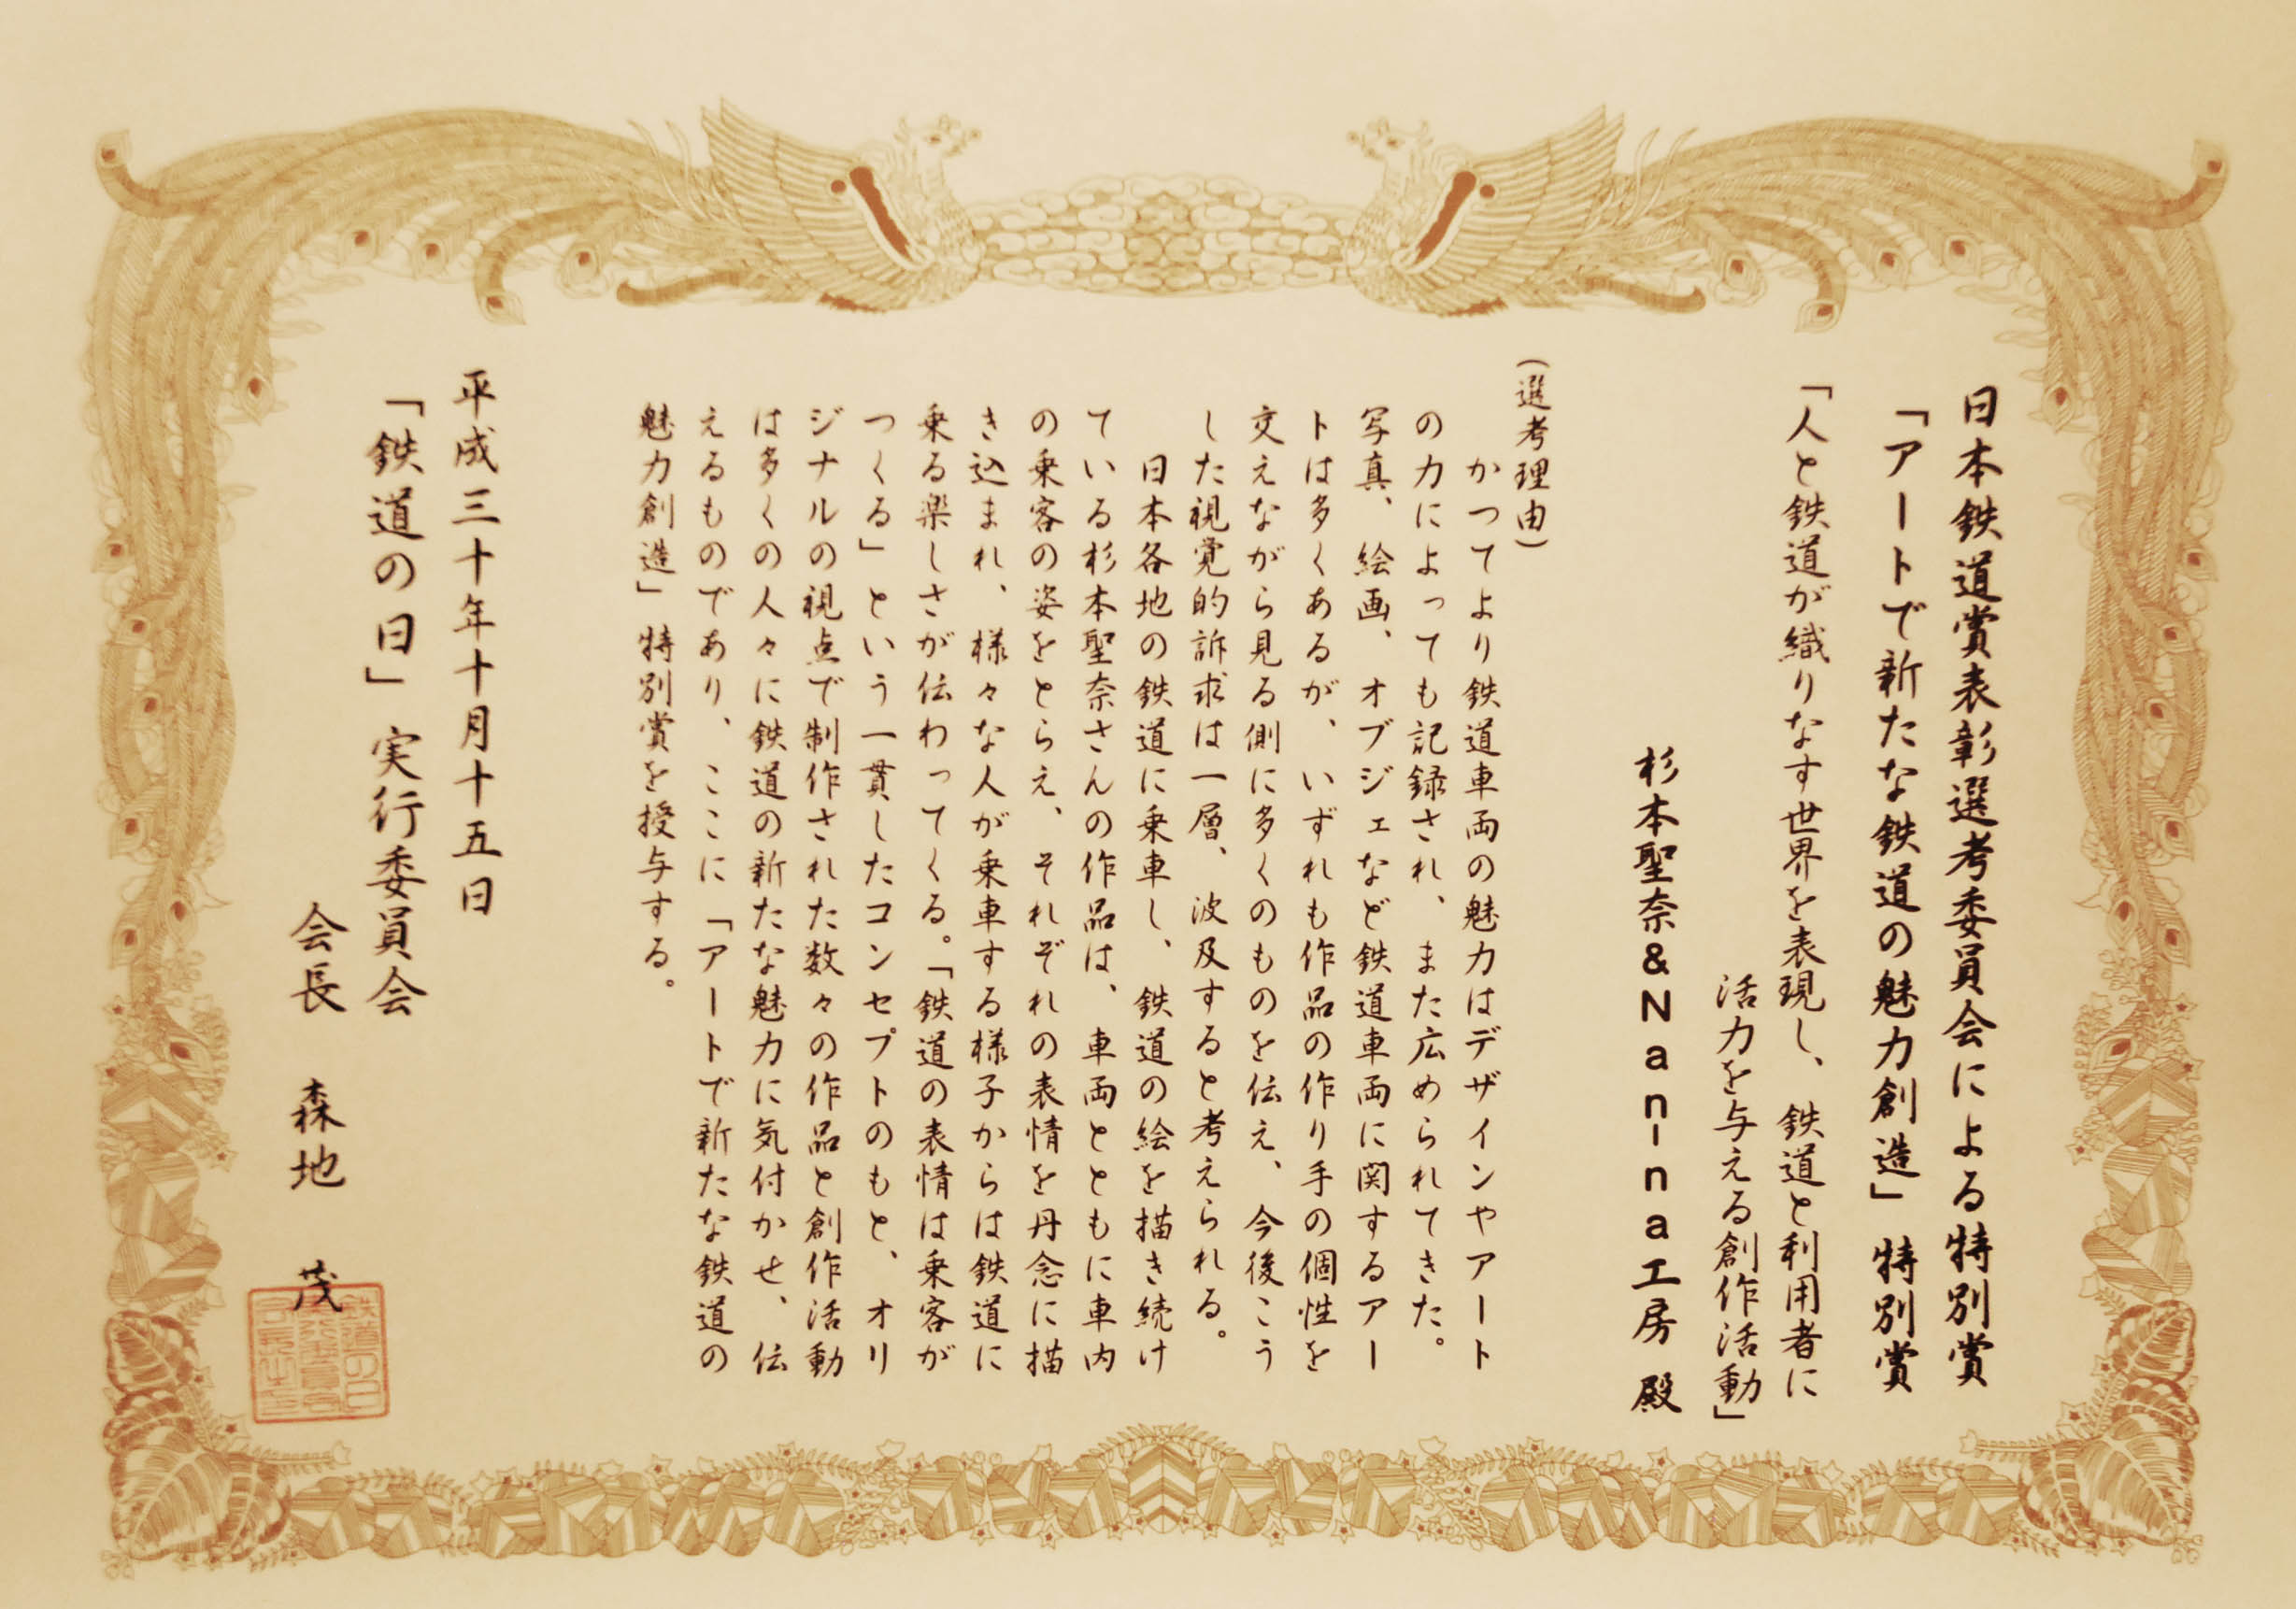 日本鉄道賞表彰選考委員会による特別賞
「アートで新たな鉄道の魅力創造」特別賞
「人と鉄道が織りなす世界を表現し、鉄道と利用者に
活力を与える創作活動」
杉本聖奈&Nan-na工房 殿
(選考理由)
かつてより鉄道車両の魅力はデザインやアート
の力によっても記録され、また広められてきた。
写真、絵画、オブジェなど鉄道車両に関するアー
トは多くあるが、いずれも作品の作り手の個性を
交えながら見る側に多くのものを伝え、今後こう
した視覚的訴求は一層、波及すると考えられる。
日本各地の鉄道に乗車し、鉄道の絵を描き続け
ている杉本聖奈さんの作品は、車両とともに車内
の乗客の姿をとらえ、それぞれの表情を丹念に描
き込まれ、様々な人が乗車する様子からは鉄道に
乗る楽しさが伝わってくる。「鉄道の表情は乗客が
つくる」という一貫したコンセプトのもと、オリ
ジナルの視点で制作された数々の作品と創作活動
は多くの人々に鉄道の新たな魅力に気付かせ、伝
えるものであり、ここに「アートで新たな鉄道の
魅力創造」特別賞を授与する。
平成三十年十月十五日
「鉄道の日」実行委員会
会長 森地 茂